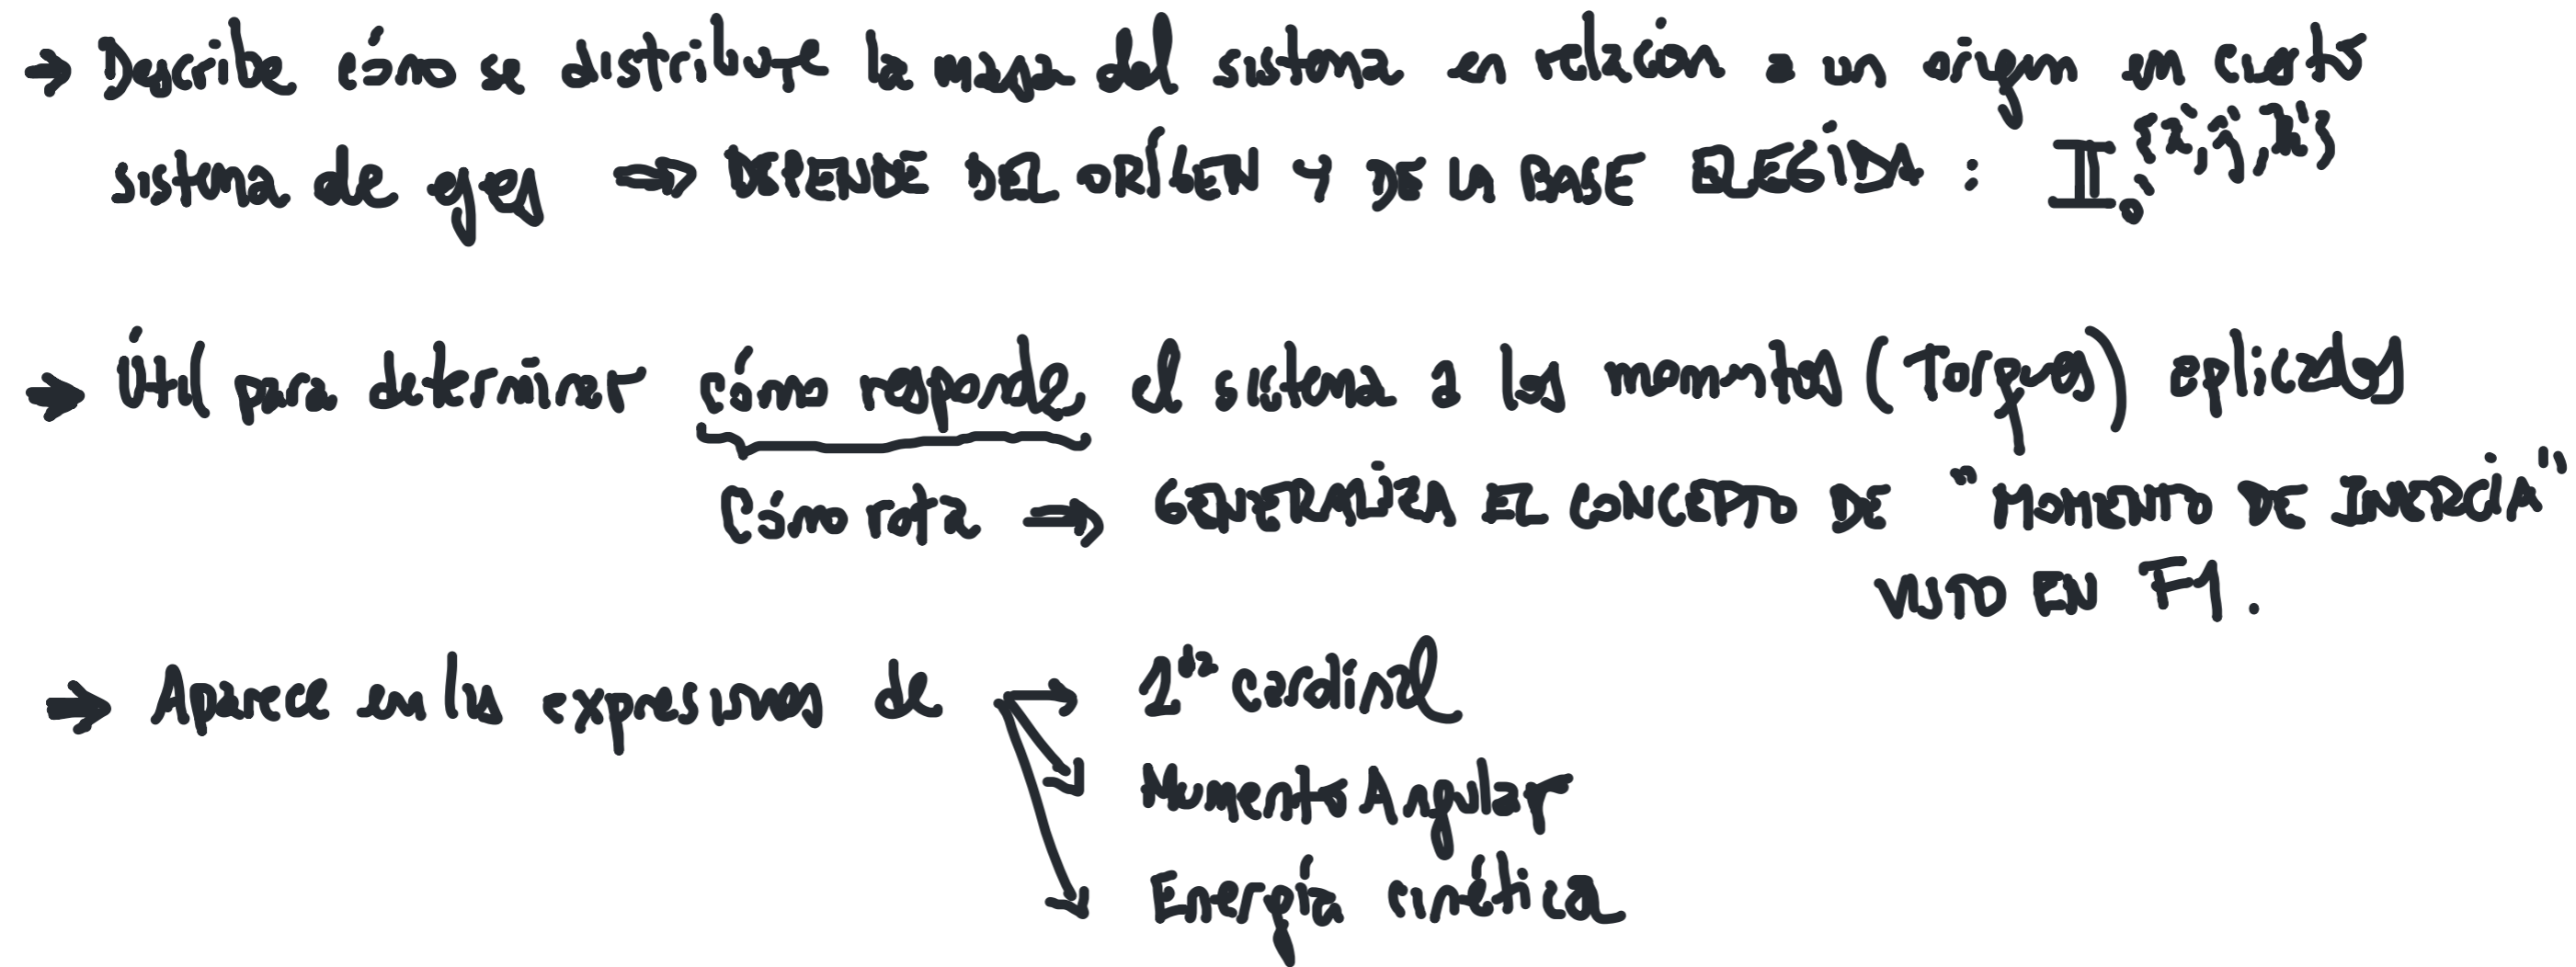 → Describe cómo se distribuye la masa del sistema en relación a un origen en cierto
sistema de ejes ⇒ DEPENDE DEL ORÍGEN Y DE LA BASE ELEGIDA : 𝕀₀'^{i', j', k'}
→ Útil para determinar cómo responde el sistema a los momentos (Torques) aplicados
Cómo rota ⇒ GENERALIZA EL CONCEPTO DE "MOMENTO DE INERCIA"
VISTO EN F1.
→ Aparece en las expresiones de → 2da cardinal
Momento Angular
Energía cinética